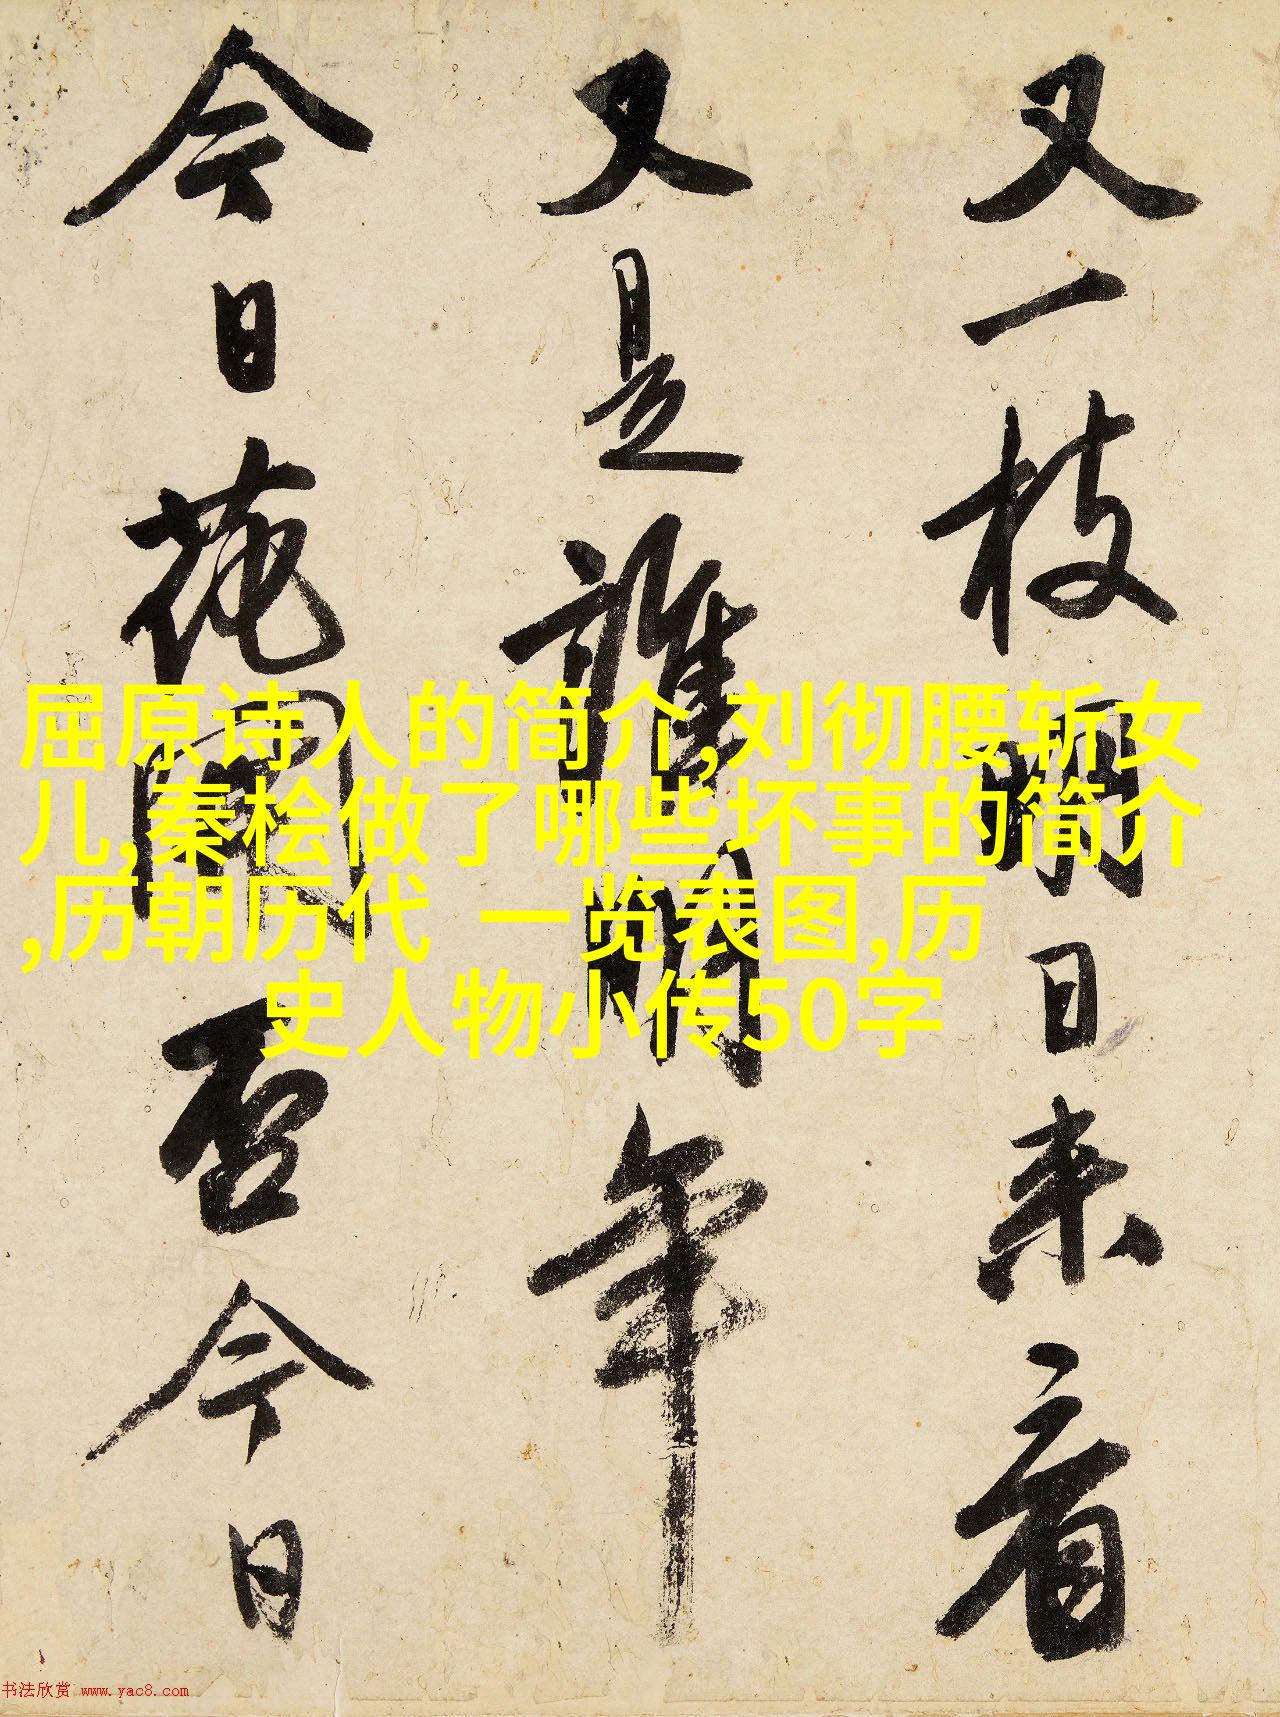 又一枝明日来看
又是誰明年
今日花開否今日
屈原诗人的简介,刘彻腰斩女
儿,秦桧做了哪些坏事的简介
,历朝历代 一览表图,历
史人物小传50字
书法欣赏 www.yac8.com